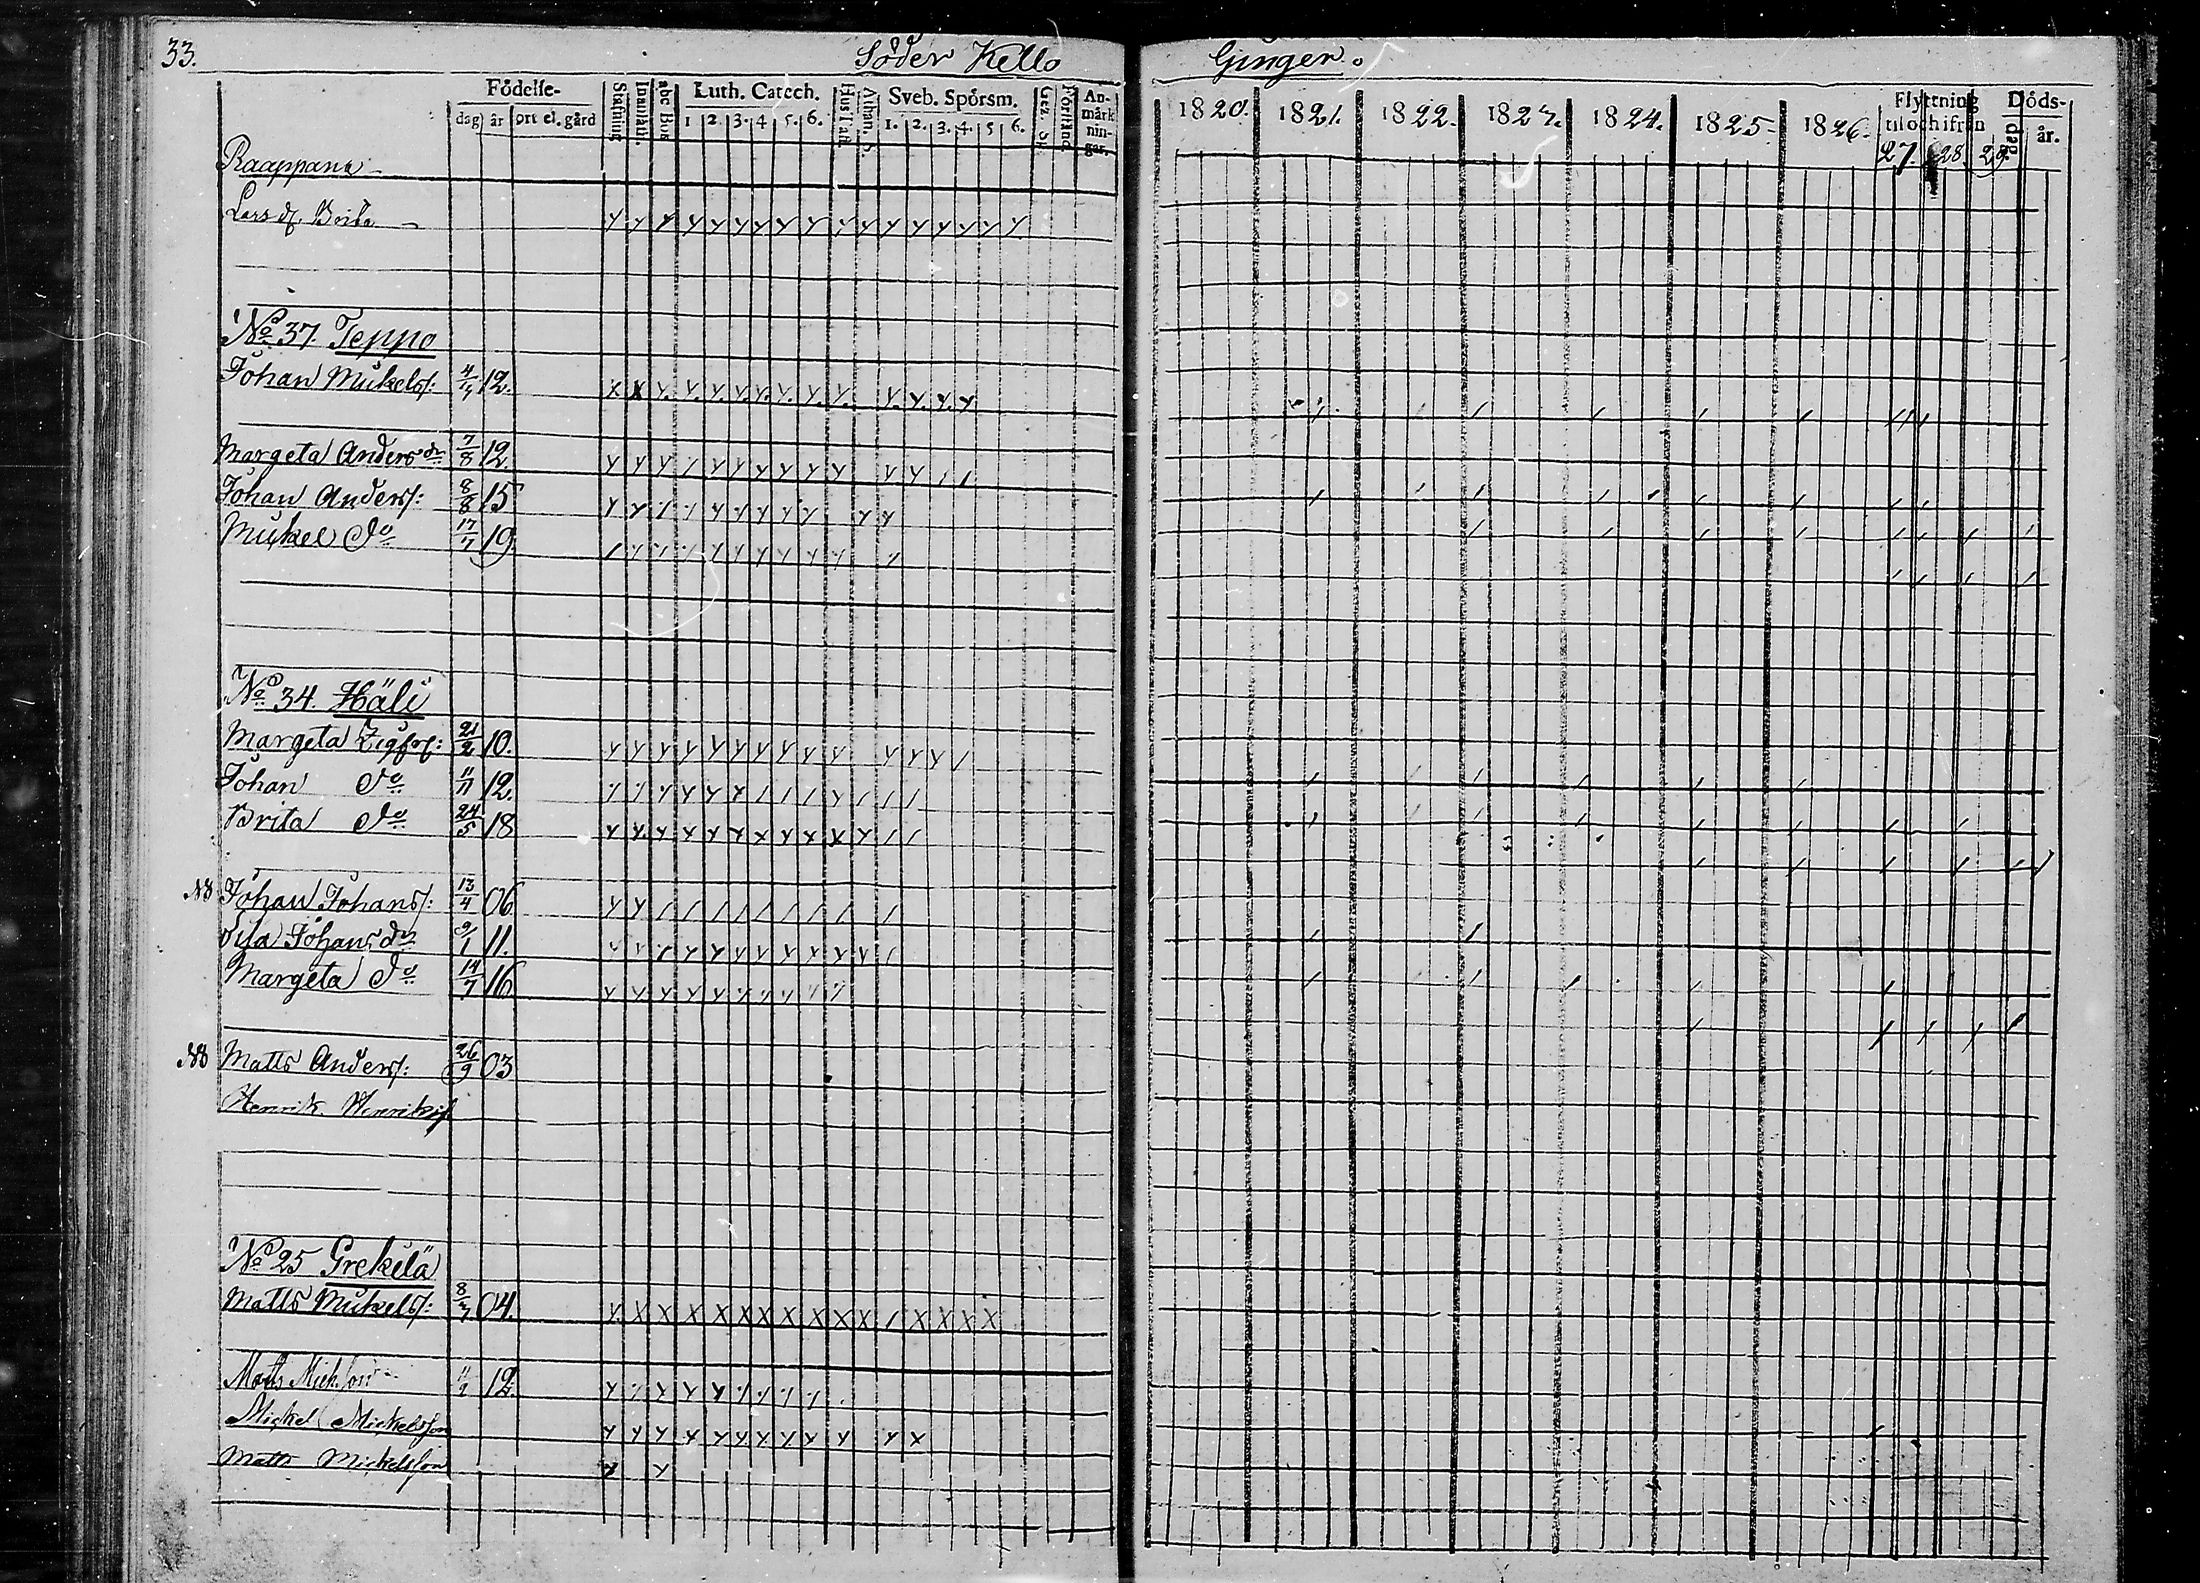 33.
Söder Kello
Födelse-
dag
år
ort el. gård
Stafning
Innanläsn.
abc Bok
Luth. Catech.
1 2. 3. 4 5. 6.
Hus Tafl.
Athan. S.
Sveb. Spörsm.
1. 2. 3. 4. 5 6.
Gez. Sk.
Förstånd
An-
märk
nin-
gar.
Raappana
Lars d. Brita
No 37. Teppo
Johan Mickels: 12.
Margeta Anders dr 7/8 12
Johan Anders: 8/8 15
Mickel do 17/7 19
No 34. Häli
Margeta Zigfr: 21/2 10.
Johan do 11/11 12.
Brita do 24/5 18
NB Johan Johans: 13/4 06
Johans dr 9/1 11.
Margeta do 14/7 16
NB Matts Anders: 26/9 03
Henrik Henriks
No 25 Grekelä
Matts Mickels: 04.
Matts Mick.son 12
Mickel Mickelsson
Matts Mickelsson
Gånger.
1820. 1821. 1822. 1823. 1824. 1825. 1826.
Flyttning
til och ifrån
27. 28. 29.
Döds-
dag
år.